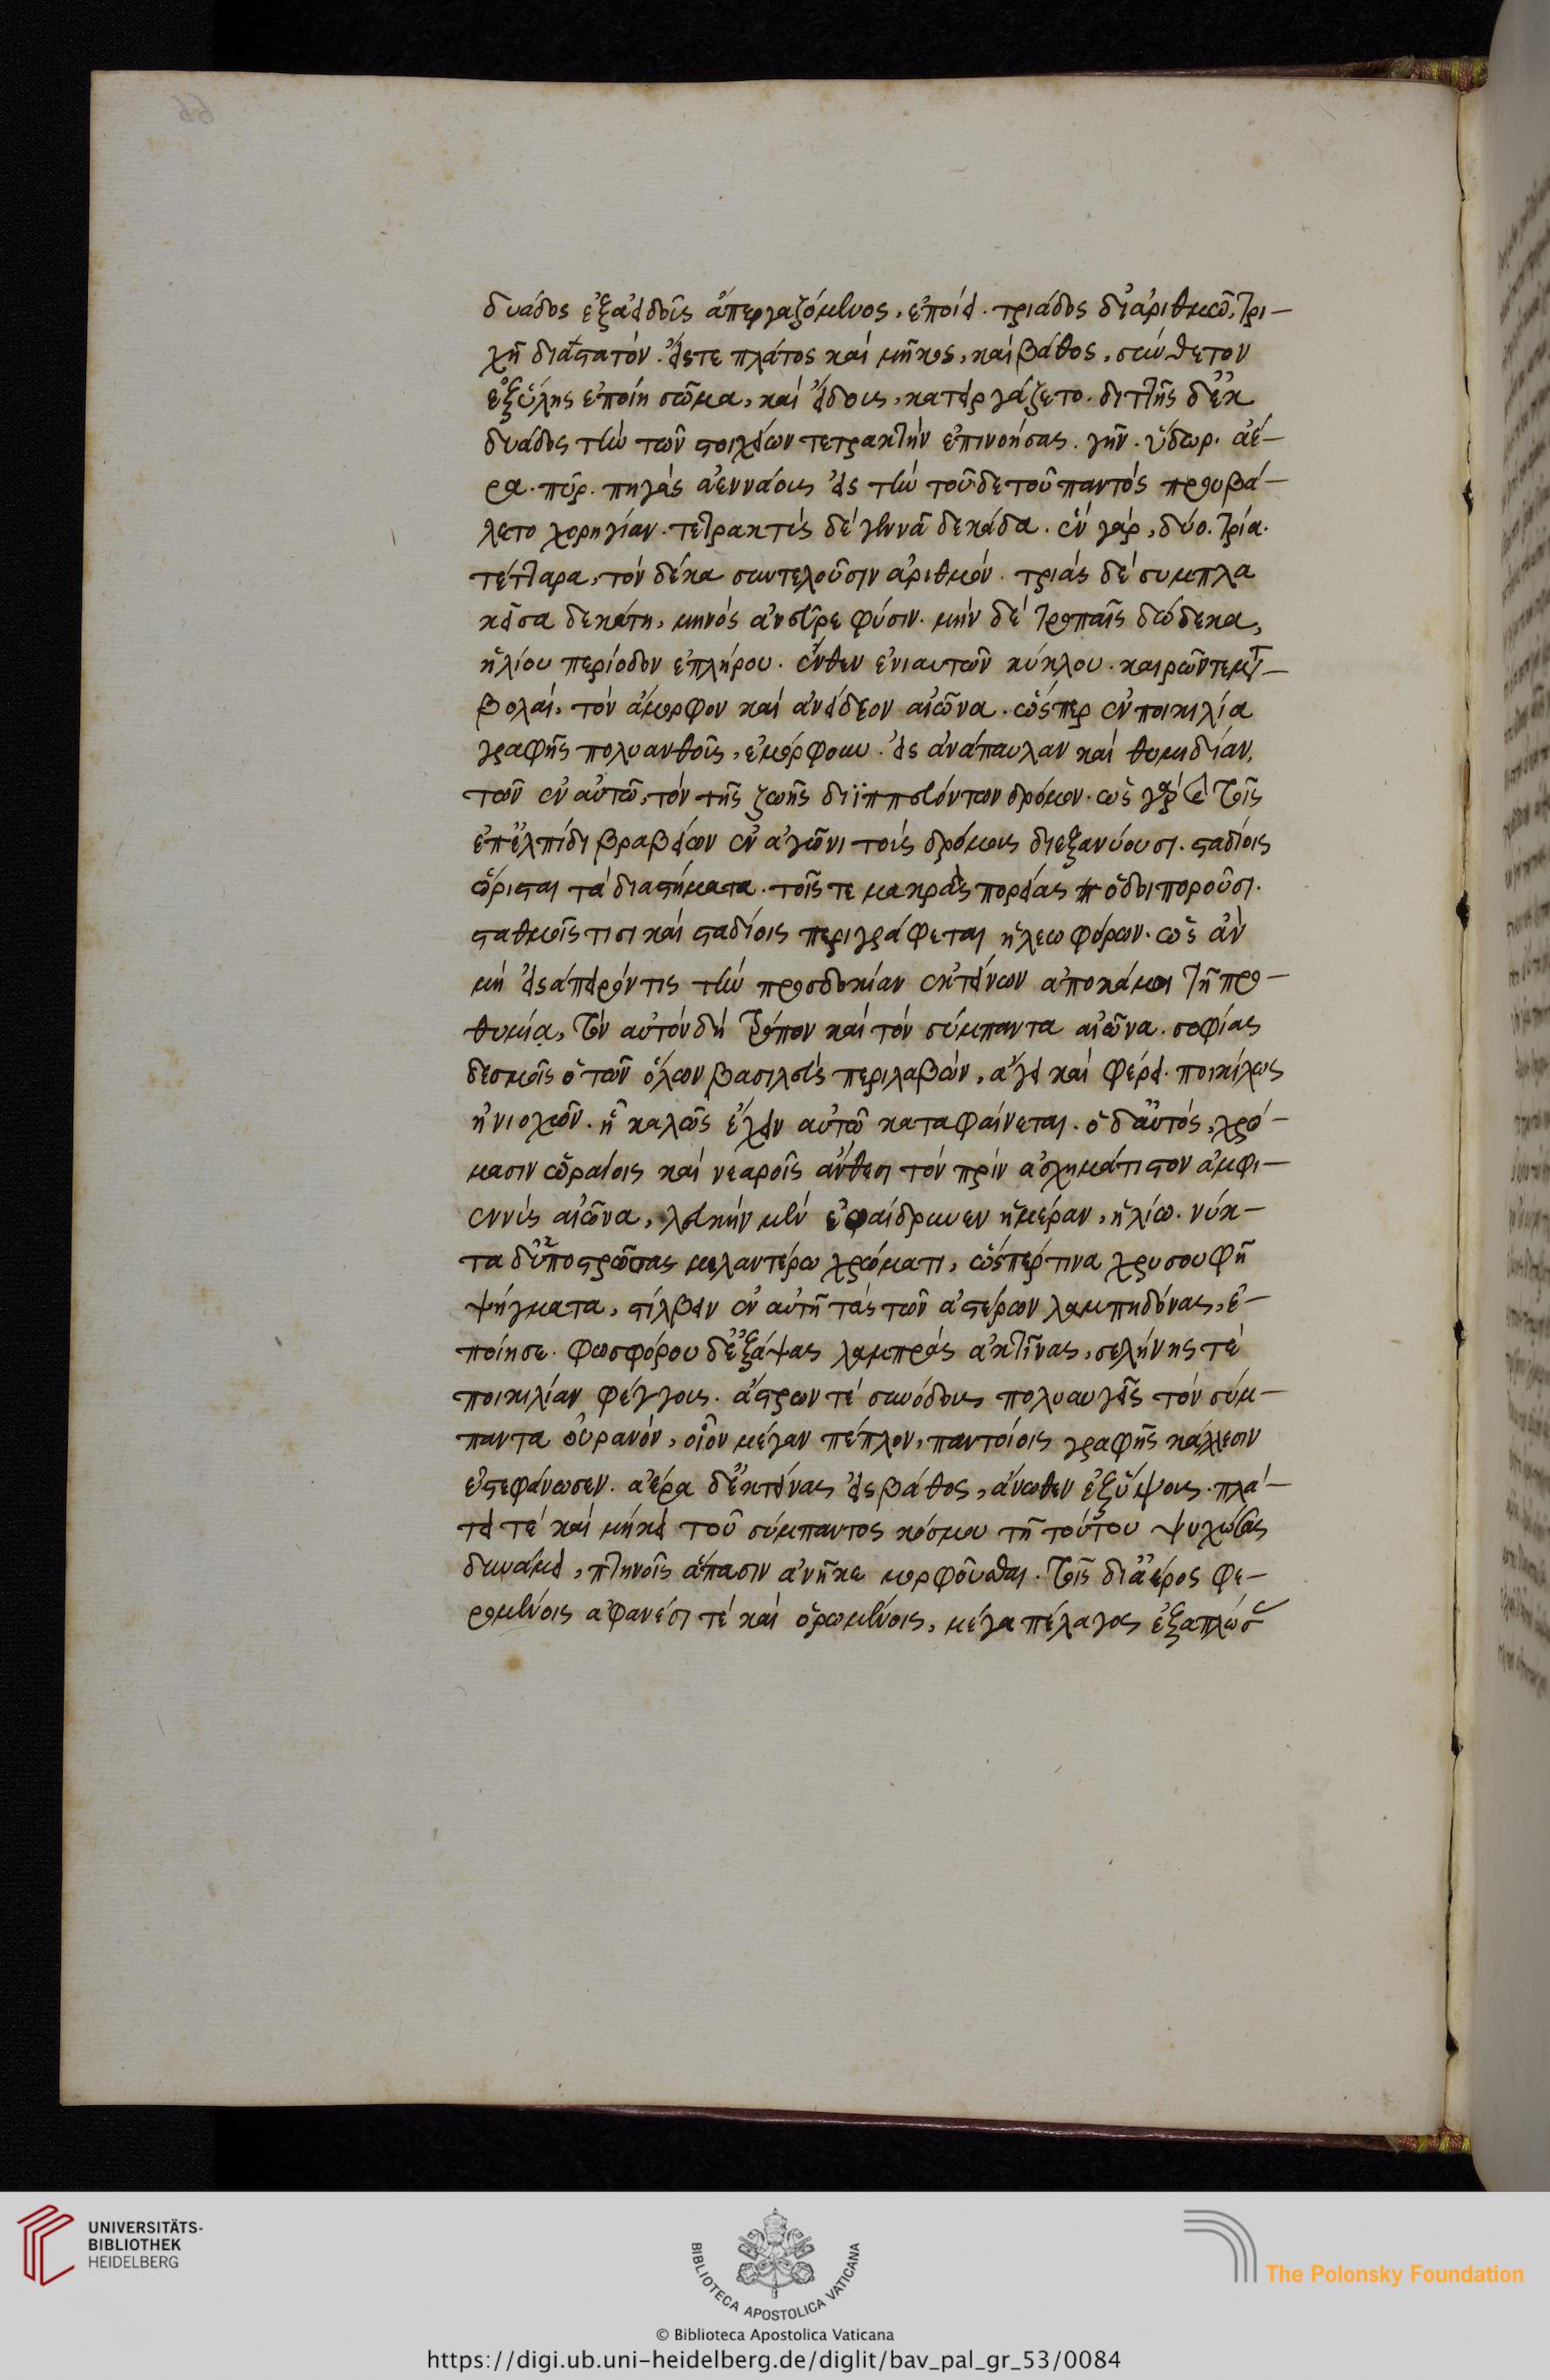 δυάδος ἐξ ἀειδοῦς ἀπεργαζόμενος, ἐποίει. τριάδος δι' ἀριθμῶ, τρι-
χῆ διαστατόν. εἴστε πλάτος καὶ μῆκος, καὶ βάθος, σύνθετον
ἐξ ὕλης ἐποίη σῶμα, καὶ εἴδους, κατειργάζετο. διττῆς δ' ἐκ
δυάδος τὴν τῶν στοιχείων τετρακτὴν ἐπινοήσας. γῆν. ὕδωρ. ἀέ-
ρα. πῦρ. πηγὰς ἀεννάους εἰς τὴν τοῦδε τοῦ παντὸς προυβά-
λετο χορηγίαν. τετρακτὺς δὲ γεννᾶ δεκάδα. ἓν γὰρ, δύο. τρία.
τέτταρα, τὸν δέκα συντελοῦσιν ἀριθμόν. τριὰς δὲ συμπλα
κεῖσα δεκάτη, μηνὸς ἀνεῦρε φύσιν. μὴν δὲ τροπαῖς δώδεκα,
ἡλίου περίοδον ἐπλήρου. ἔνθεν ἐνιαυτῶν κύκλου. καιρῶν τε μετ-
βολαὶ, τὸν ἄμορφον καὶ ἀνείδεον αἰῶνα. ὥσπερ ἐν ποικιλία
γραφῆς πολυανθοῦς, ἐμόρφουν. εἰς ἀνάπαυλαν καὶ θυμηδίαν,
τῶν ἐν αὐτῶ, τὸν τῆς ζωῆς διϊππευόντων δρόμον. ὡς γὰρ τοῖς
ἐπ' ἐλπίδι βραβείων ἐν ἀγῶνι τοὺς δρόμους διεξανύουσι. σταδίοις
ὥρισται τὰ διαστήματα. τοῖς τε μακρὰς πορείας ὁδοιποροῦσι.
σταθμοῖς τισι καὶ σταδίοις περιγράφεται ἡ λεωφόρων. ὡς ἂν
μὴ εἰς ἀπειρόν τις τὴν προσδοκίαν ἐκτείνων ἀποκάμοι τῆ προ-
θυμία, τὸν αὐτὸν δὴ τρόπον καὶ τὸν σύμπαντα αἰῶνα. σοφίας
δεσμοῖς ὁ τῶν ὅλων βασιλεὺς περιλαβὼν, ἄγει καὶ φέρει. ποικίλως
ἡνιοχῶν. ἧ καλῶς ἔχειν αὐτῶ καταφαίνεται. ὁ δ' αὐτὸς, χρώ-
μασιν ὡραίοις καὶ νεαροῖς ἄνθεσι τὸν πρὶν ἀσχημάτιστον ἀμφι-
εννὺς αἰῶνα, λευκὴν μὲν ἐφαίδρυνεν ἡμέραν, ἡλίω. νύκ-
τα δ' ὑποστρώσας μελαντέρω χρώματι, ὥσπερ τινα χρυσουφῆ
ψήγματα, στίλβειν ἐν αὐτῆ τὰς τῶν ἀστέρων λαμπηδόνας, ἐ-
ποίησε. φωσφόρου δ' ἐξάψας λαμπρὰς ἀκτῖνας, σελήνης τὲ
ποικιλίαν φέγγους. ἄστρων τὲ συνόδους πολυαυγεῖς τὸν σύμ-
παντα οὐρανόν, οἷον μέγαν πέπλον, παντοίοις γραφῆς κάλλεσιν
ἐστεφάνωσεν. ἀέρα δ' ἐκτείνας εἰς βάθος, ἄνωθεν ἐξ ὕψους. πλά-
τει τὲ καὶ μήκει τοῦ σύμπαντος κόσμου τῆ τούτου ψυχώσας
δυνάμει, πτηνοῖς ἅπασιν ἀνῆκε μορφοῦσθαι. τοῖς δι' ἀέρος φε-
ρομένοις ἀφανέσι τὲ καὶ ὁρωμένοις, μέγα πέλαγος ἐξαπλώσ
UNIVERSITÄTS-
BIBLIOTHEK
HEIDELBERG
BIBLIOTECA APOSTOLICA VATICANA
The Polonsky Foundation
© Biblioteca Apostolica Vaticana
https://digi.ub.uni-heidelberg.de/diglit/bav_pal_gr_53/0084